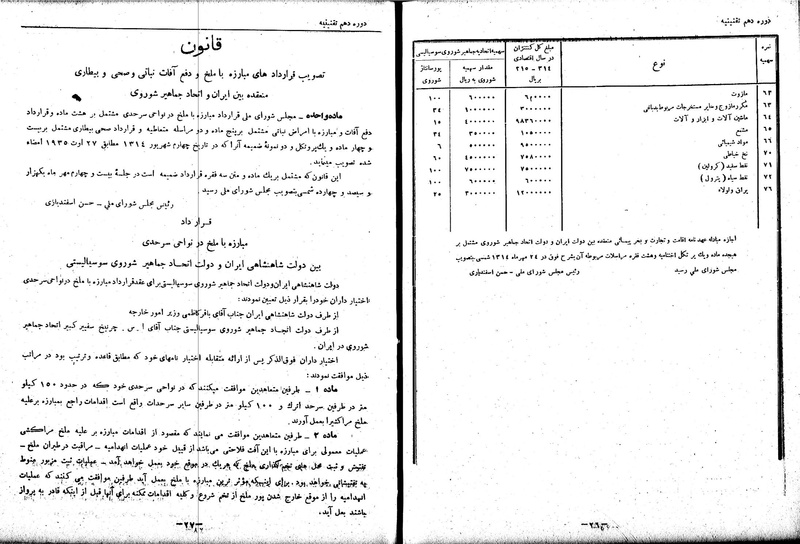 دوره دهم تقنینیه
نمره سهمیه
نوع
مبلغ کل کنتنژان در سال اقتصادی ۳۱۴ - ۳۱۵ بریال
سهمیه اتحادیه جماهیر شوروی سوسیالیستی
مقدار سهمیه شوروی به ریال
پورسانتاژ شوروی
۶۲ مازوت ۶۰۰۰۰۰ ۱۰۰
۶۳ ۱۰۰۰۰۰۰ ۳۰۰۰۰۰ ۳۴
۶۴ ماشین آلات و ابزار و آلات ۹۸۳۶۰۰۰۰ ۴۰۰۰۰۰۰ ۱۵
۶۵ مشمع ۱۰۵۰۰۰۰ ۳۵۰۰۰۰ ۳۴
۶۶ مواد شیمیائی ۹۰۰۰۰۰۰ ۵۰۰۰۰۰ ۶
۷۰ نخ خیاطی ۷۵۸۰۰۰۰ ۴۰۰۰۰۰۰ ۶۰
۷۱ نفط سفید ۷۵۰۰۰۰۰ ۷۵۰۰۰۰۰ ۱۰۰
۷۲ نفط سیاه ( پترول ) ۶۰۰۰۰۰ ۶۰۰۰۰۰ ۱۰۰
۷۶ یراق و لولاء ۱۲۰۰۰۰۰۰ ۳۰۰۰۰۰۰ ۲۵
اجازه مبادله عهدنامه اقامت و تجارت و بحر پیمائی منعقده بین دولت ایران و دولت اتحاد جماهیر شوروی مشتمل بر
هیجده ماده و یک پرتکل اختتامیه و هشت فقره مراسلات مربوطه آن بشرح فوق در ۲۴ مهرماه ۱۳۱۴ شمسی بتصویب
مجلس شورای ملی رسید رئیس مجلس شورای ملی - حسن اسفندیاری
-۲۶-
دوره دهم تقنینیه
قانون
تصویب قرارداد های مبارزه با ملخ و دفع آفات نباتی و صحی و بیطاری
منعقده بین ایران و اتحاد جماهیر شوروی
ماده واحده - مجلس شورای ملی قرارداد مبارزه با ملخ در نواحی سرحدی مشتمل بر هشت ماده و قرارداد
دفع آفات و مبارزه با امراض نباتی مشتمل بر پنج ماده و دو مراسله متعاطیه و قرارداد صحی بیطاری مشتمل بر بیست
و چهار ماده و یک پروتکل و دو نمونه ضمیمه آنرا که در تاریخ چهارم شهریور ۱۳۱۴ مطابق ۲۷ اوت ۱۹۳۵ امضاء
شده تصویب مینماید.
این قانون که مشتمل بر یک ماده و متن سه فقره قرارداد ضمیمه است در جلسهٔ بیست و چهارم مهر ماه یکهزار
و سیصد و چهارده شمسی بتصویب مجلس شورای ملی رسید.
رئیس مجلس شورای ملی - حسن اسفندیاری
قرار داد
مبارزه با ملخ در نواحی سرحدی
بین دولت شاهنشاهی ایران و دولت اتحاد جماهیر شوروی سوسیالیستی
دولت شاهنشاهی ایران و دولت اتحاد جماهیر شوروی سوسیالیستی برای عقد قرارداد مبارزه با ملخ در نواحی سرحدی
اختیار داران خود را بقرار ذیل تعیین نمودند:
از طرف دولت شاهنشاهی ایران جناب آقای باقر کاظمی وزیر امور خارجه
از طرف دولت اتحاد جماهیر شوروی سوسیالیستی جناب آقای ا. س. چرنیخ سفیر کبیر اتحاد جماهیر
شوروی در ایران.
اختیار داران فوق الذکر پس از ارائه متقابله اختیار نامهای خود که مطابق قاعده و ترتیب بود در مراتب
ذیل موافقت نمودند:
ماده ۱ - طرفین متعاهدین موافقت میکنند که در نواحی سرحدی خود که در حدود ۱۵۰ کیلو
متر در طرفین سرحد اترک و ۱۰۰ کیلو متر در طرفین سایر سرحدات واقع است اقدامات راجع بمبارزه برعلیه
ملخ مراکشی را بعمل آورند.
ماده ۲ - طرفین متعاهدین موافقت می نمایند که مقصود از اقدامات مبارزه بر علیه ملخ مراکشی
عملیات معمولی برای مبارزه با این آفت فلاحتی می باشد از قبیل خود عملیات انهدامیه - مراقبت در طیران ملخ -
تفتیش و ثبت محل های تخم گذاری ملخ که هر یک در موقع خود بعمل خواهد آمد - عملیات ثبت مزبور منوط
به تفتیشاتی خواهد بود. برای اینکه مؤثر ترین مبارزه با ملخ بعمل آید طرفین موافقت می کنند که عملیات
انهدامیه را از موقع خارج شدن پور ملخ از تخم شروع و کلیه اقدامات ممکنه برای آنها قبل از اینکه قادر به پرواز
باشند بعمل آید.
-۲۷-